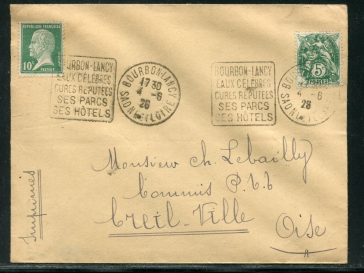 REPUBLIQUE FRANÇAISE
10c
BOURBON-LANCY
EAUX CÉLÈBRES
CURES RÉPUTÉES
SES PARCS
SES HÔTELS
BOURBON-LANCY
17 30
4 -6
26
SAONE ET LOIRE
BOURBON-LANCY
EAUX CÉLÈBRES
CURES RÉPUTÉES
SES PARCS
SES HÔTELS
5
4 -6
26
SAONE ET LOIRE
Monsieur Ch. Lebailly
Commis P.t.t
Creil-Ville
Oise
Imprimés